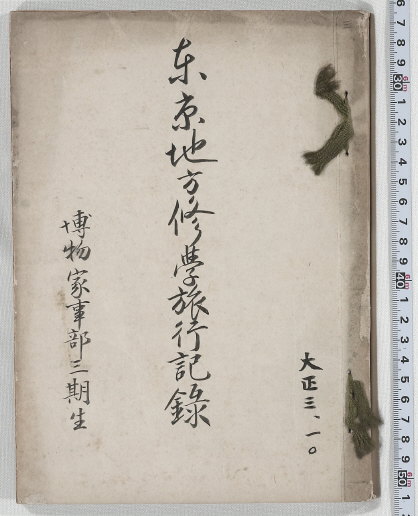 大正三、一〇
东京地方修學旅行記錄
博物家事部三期生
6 7 8 9 30 1 2 3 4 5 6 7 8 9 40 1 2 3 4 5 6 7 8 9 50 1